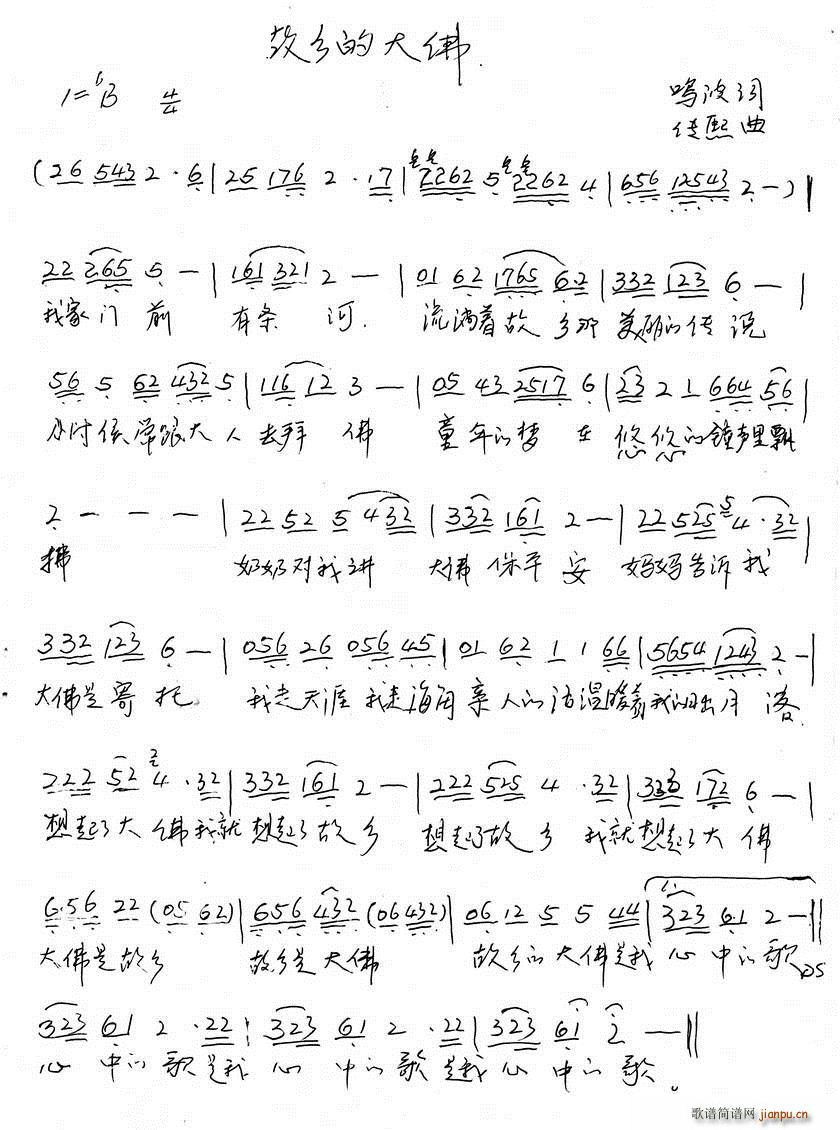 故乡的大佛
1=♭B 4/4
鸣波词
传熙曲
(26 543 2·6|25 176 2·17|2262 5 2262 4|656 12543 2—)‖
22 265 5—|161 321 2—|01 62 1765 62|332 123 6—|
我家门前 有条河 流淌着故乡那 美丽的传说
56 5 62 432 5|116 12 3—|05 43 2517 6|23 2 1 664 56|
小时候常跟大人去拜佛 童年的梦在悠悠的钟声里飘
2———|22 52 5 432|332 161 2—|22 525 4·32|
拂 奶奶对我讲 大佛保平安 妈妈告诉我
332 123 6—|056 26 056 45|01 62 1 1 66|5654 1243 2—|
大佛是寄托 我走天涯我走海角亲人的话温暖着我日出月落
222 52 4·32|332 161 2—|222 525 4·32|332 172 6—|
想起了大佛我就想起了故乡 想起了故乡我就想起了大佛
6·56 22(05 62)|656 432(06432)|06 12 5 5 44|323 61 2—‖
大佛是故乡 故乡是大佛 故乡的大佛是我心中的歌 DS
323 61 2·22|323 61 2·22|323 61 2—‖
心中的歌是我心中的歌是我心中的歌。
歌谱简谱网 jianpu.cn